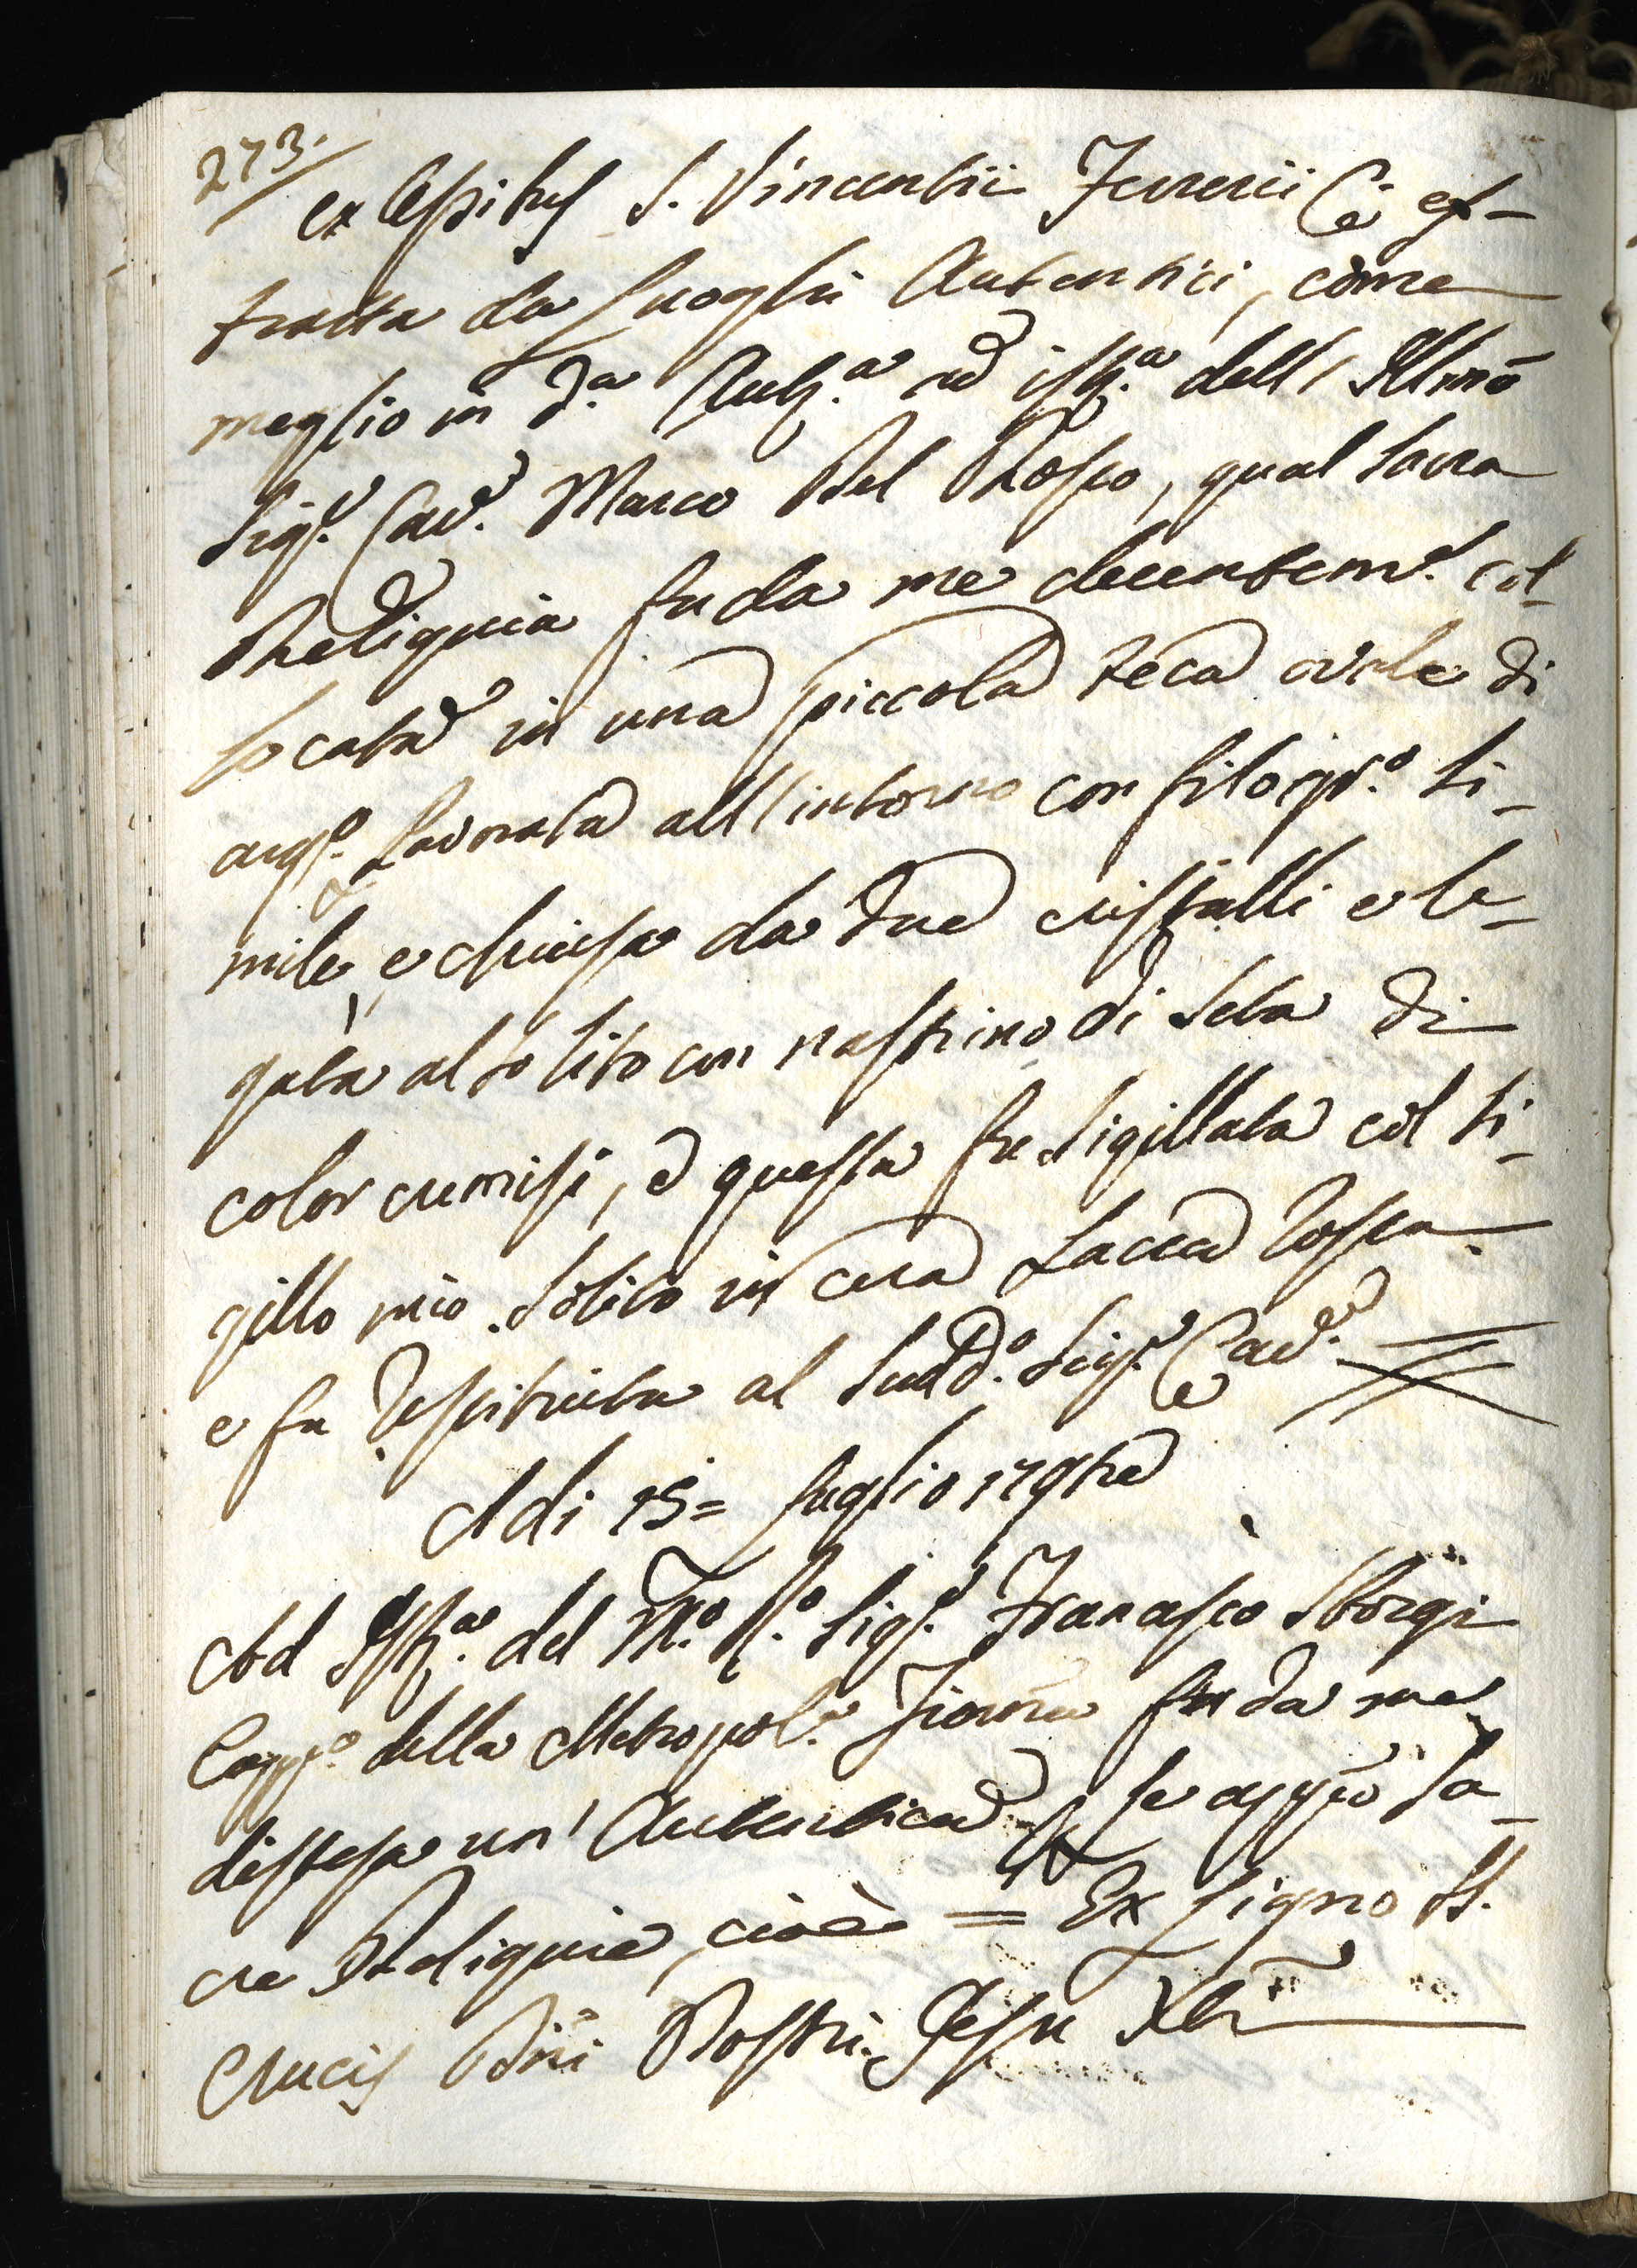 273.
ex Cessitus S. Vincentii Ferrerii C. es-
tratta da Luoghi Autentici, come
meglio in d.a Aut.a ad ist.a dell' Illmo
Sig.r Cav.r Marco Del Rosso, qual Sacra
Reliquia fu da me decentem.e col-
locata in una piccola teca ovale di
arg.o Lavorata all'intorno con filogr.o si-
mile, e chiusa da due cristalli e le-
gata al solito con nastrino di Seta di
color cremisi, e questa fu Sigillata col si-
gillo mio Solito in cera Lacca rossa
e fu restituita al Sudd.o Sig.r Cav.e
Adi 15= Luglio 1793
Ad Ist.a del M.o R.o Sig.r Francesco Sborgi
Capp.o della Metropol.a Fiorna fu da me
distesa un' Autentica se appiè Sa-
cre Reliquie, cioè = Ex Ligno SS.
Crucis Dni Nostri Jesu Xti